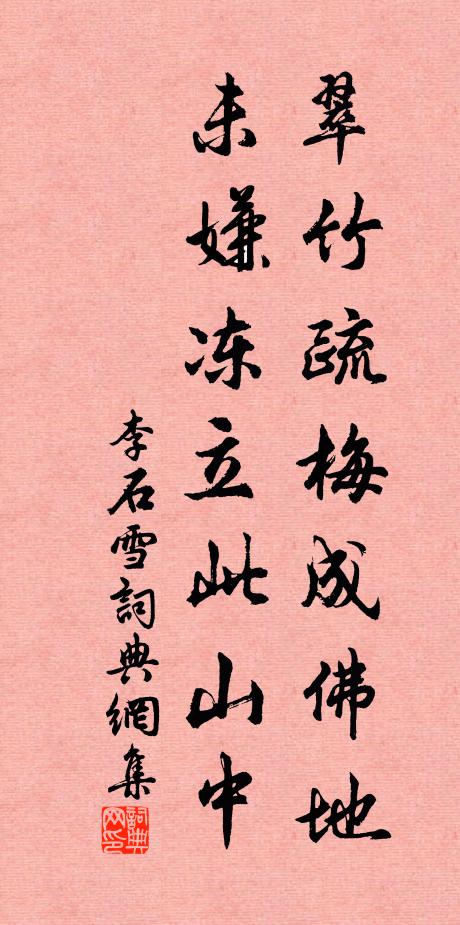 翠竹疏梅成佛地
未嫌冻立此山中
李石雪詞典網集
詞典网印